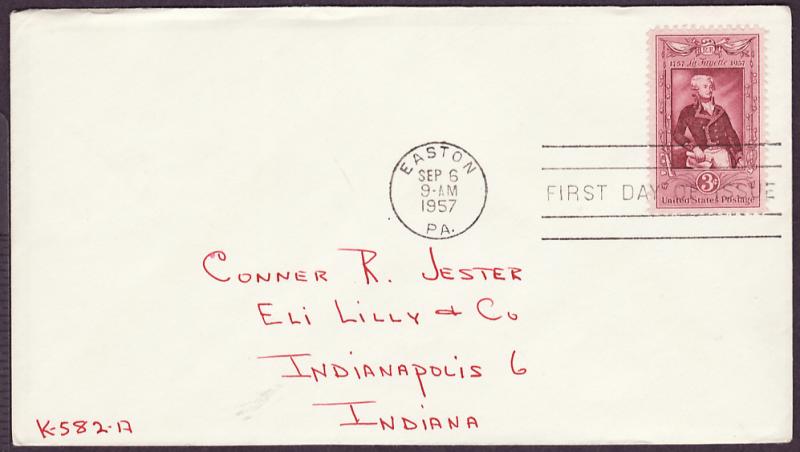 1757 La Fayette 1957
3¢
United States Postage
EASTON
SEP 6
9-AM
1957
PA.
FIRST DAY OF ISSUE
CONNER R. JESTER
ELI LILLY & Co
INDIANAPOLIS 6
INDIANA
K-582-A